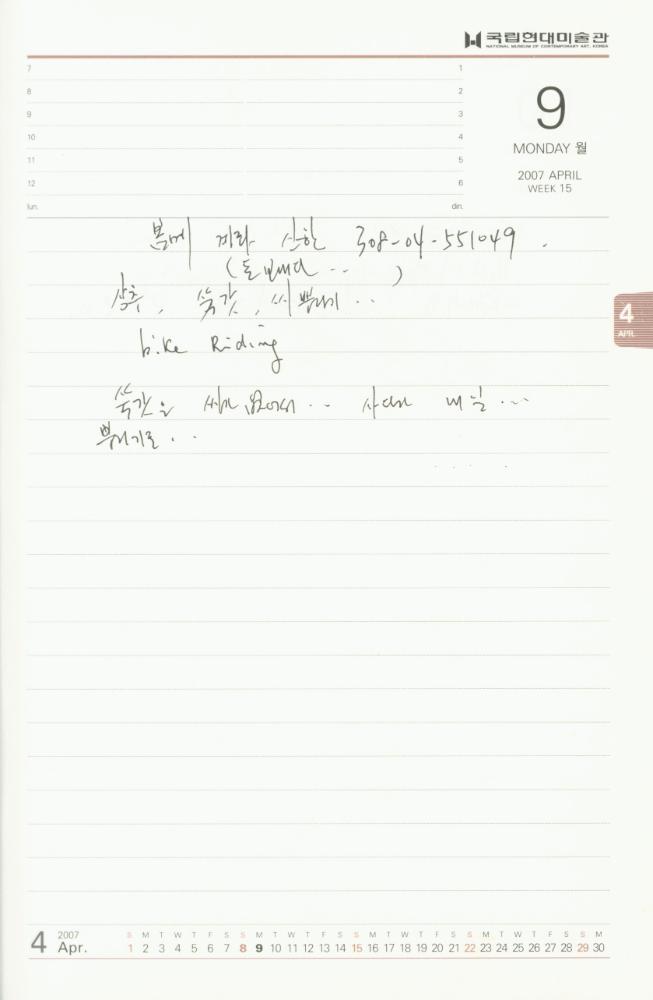 국립현대미술관
NATIONAL MUSEUM OF CONTEMPORARY ART, KOREA
7 1
8 2
9 3
10 4
11 5
12 6
lun. din.
9
MONDAY 월
2007 APRIL
WEEK 15
봄에 계좌 신한 308-04-551049.
(돈 보내다 ..)
상추, 쑥갓, 씨 뿌리기 ..
bike Riding
쑥갓을 씨가 없어서 .. 사다가 내일 ...
뿌리기로 ..
4
APR.
4 2007 Apr.
S M T W T F S S M T W T F S S M T W T F S S M T W T F S S M
1 2 3 4 5 6 7 8 9 10 11 12 13 14 15 16 17 18 19 20 21 22 23 24 25 26 27 28 29 30